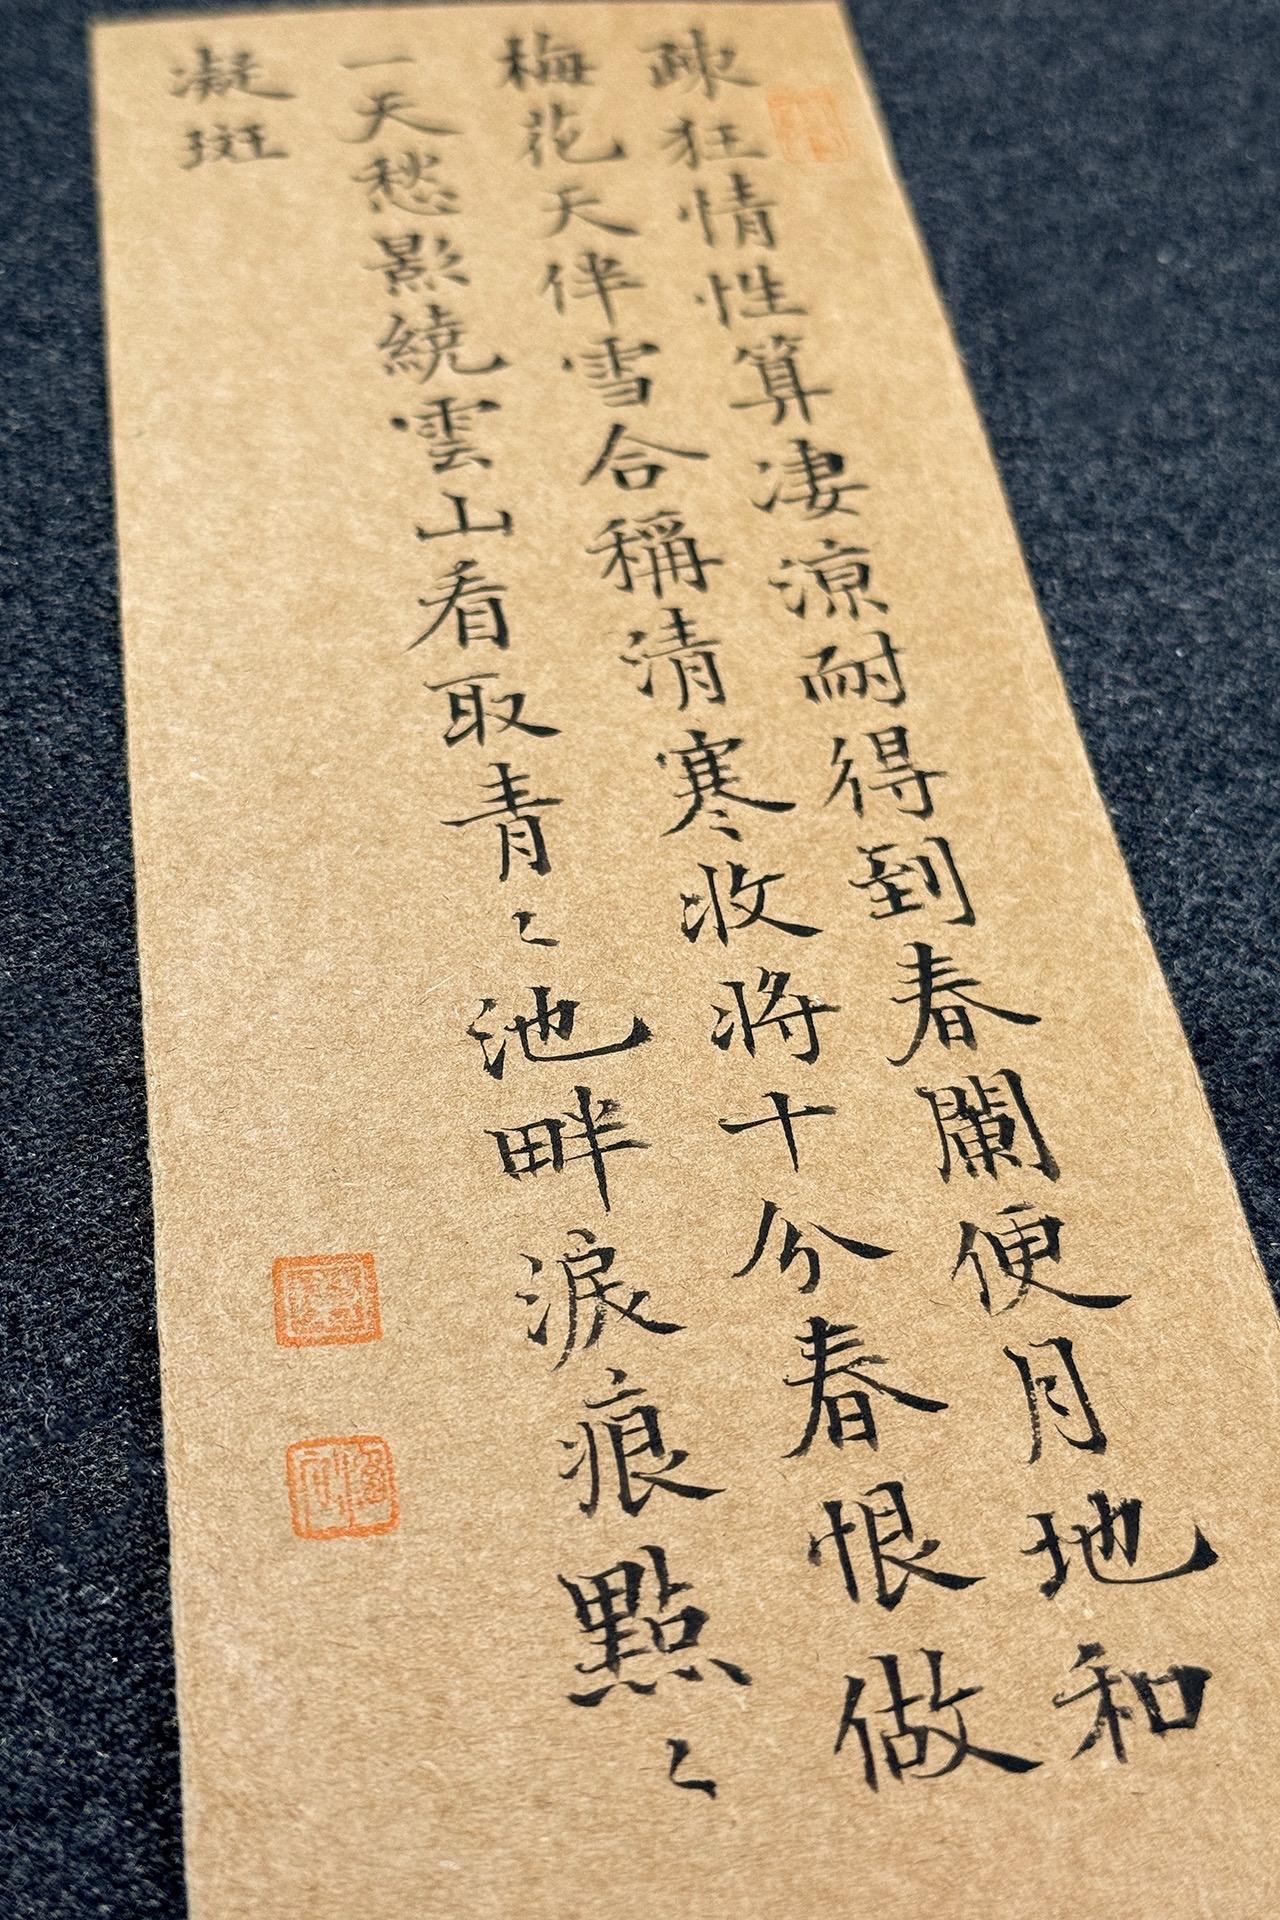 疎狂情性算凄涼耐得到春闌便月地和
梅花天伴雪合稱清寒收將十分春恨做
一天愁影繞雲山看取青〻池畔淚痕點〻
凝斑